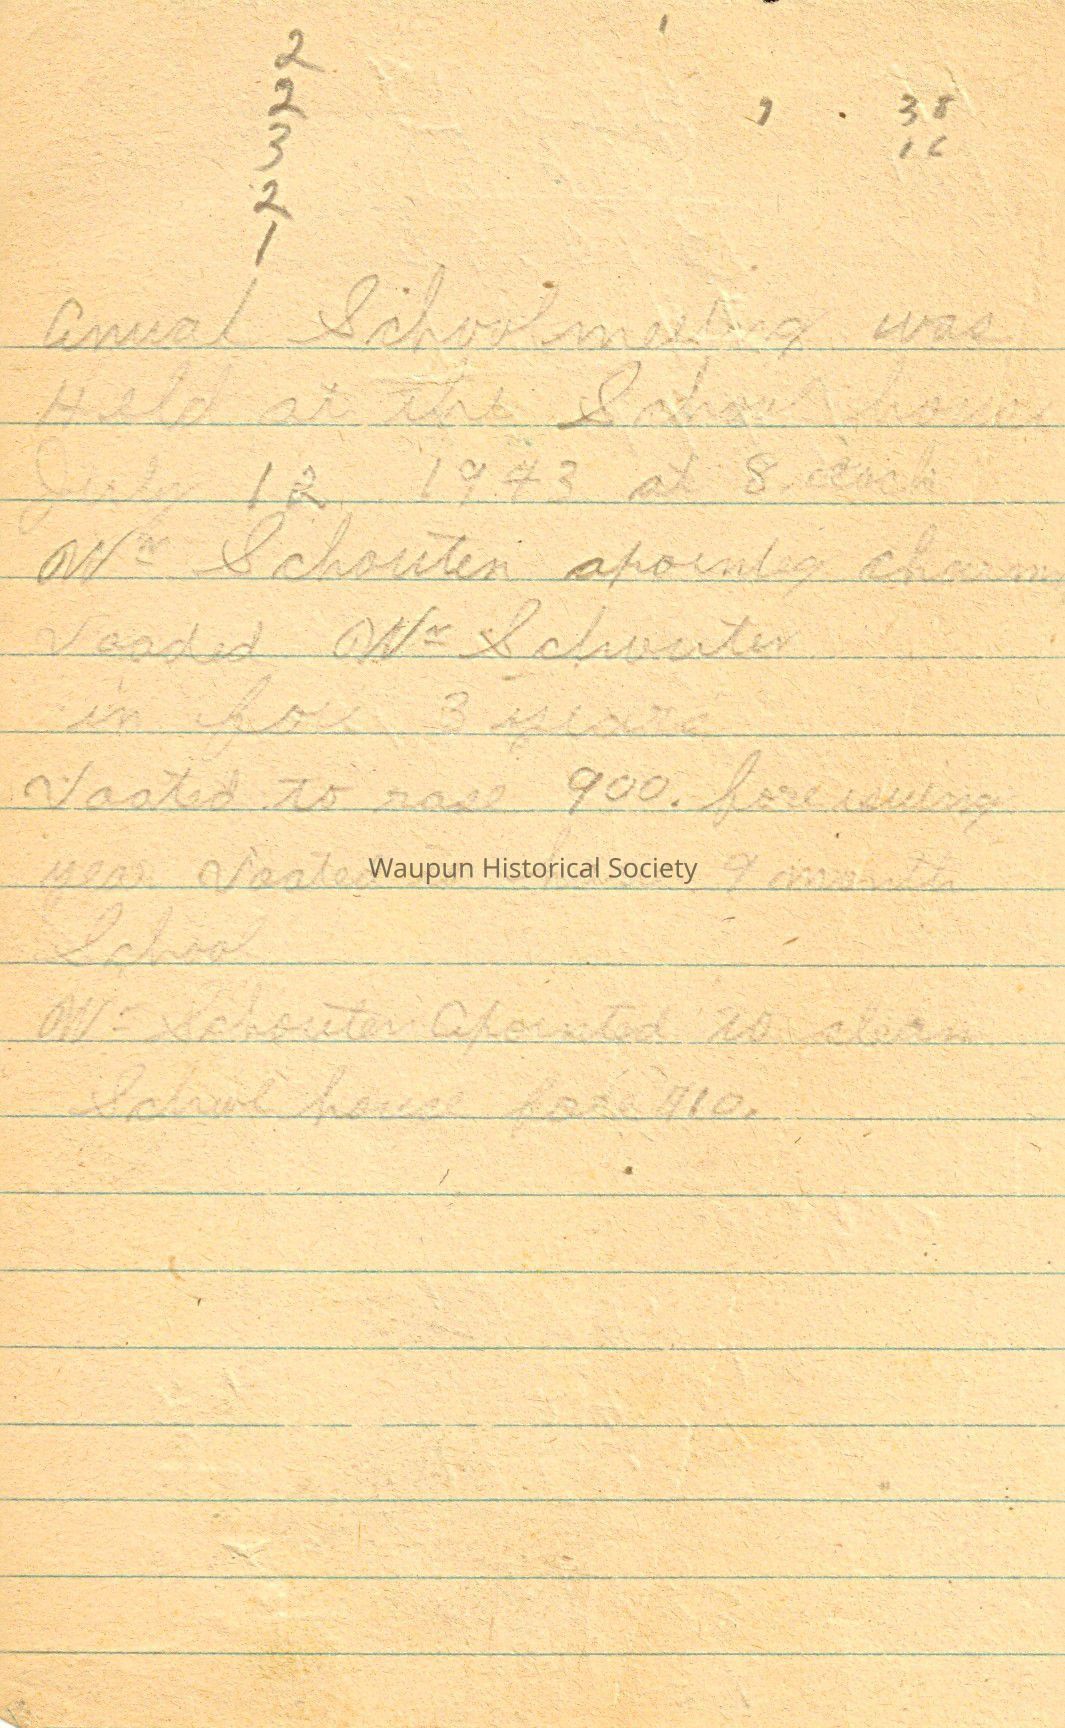 2
2
3
2
1
38
16
Anual School meeting was
Held at the School house
July 12 1943 at 8
Wm Schouten apointeg
Vooded Wm Schouten
in for 3 years
Vooted to rase 900. fore
year Vooted 9 month
School
Wm Schouten Apointed to clean
School house fore 10.
Waupun Historical Society